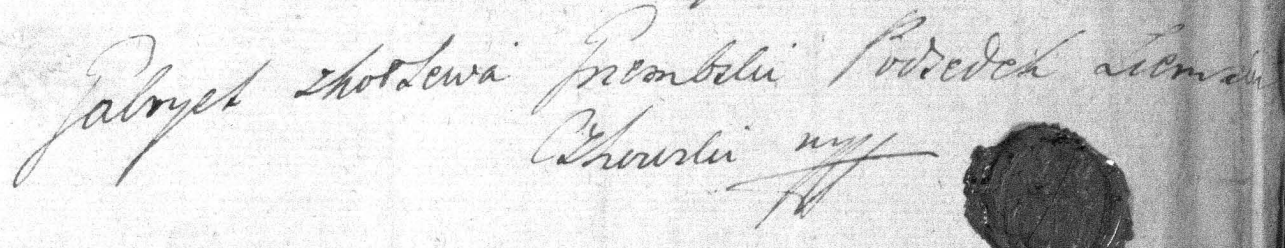 Gabryel zhołzewa Gnembski Podsedek Ziemski
Czhowski mpp